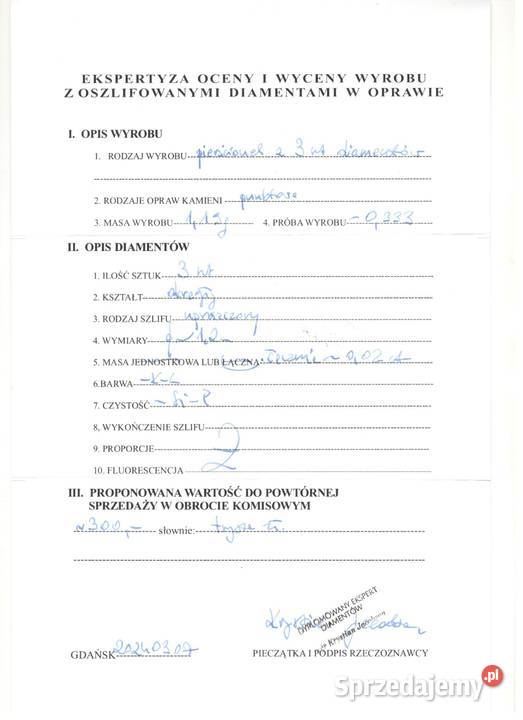 EKSPERTYZA OCENY I WYCENY WYROBU
Z OSZLIFOWANYMI DIAMENTAMI W OPRAWIE
I. OPIS WYROBU
1. RODZAJ WYROBU pierścionek z 3 szt diamentów
2. RODZAJE OPRAW KAMIENI punktowa
3. MASA WYROBU 1,19g 4. PRÓBA WYROBU - 0,333
II. OPIS DIAMENTÓW
1. ILOŚĆ SZTUK 3 szt
2. KSZTAŁT okrągły
3. RODZAJ SZLIFU uproszczony
4. WYMIARY φ ~ 1,2
5. MASA JEDNOSTKOWA LUB ŁĄCZNA: łącznie ~ 0,02 ct
6.BARWA - K-L
7. CZYSTOŚĆ - Si-P
8, WYKOŃCZENIE SZLIFU
9. PROPORCJE 2
10. FLUORESCENCJA
III. PROPONOWANA WARTOŚĆ DO POWTÓRNEJ
SPRZEDAŻY W OBROCIE KOMISOWYM
~ 300,- słownie: trzysta zł.
DYPLOMOWANY EKSPERT
DIAMENTÓW
GDAŃSK 20240307 PIECZĄTKA I PODPIS RZECZOZNAWCY
Sprzedajemy.pl